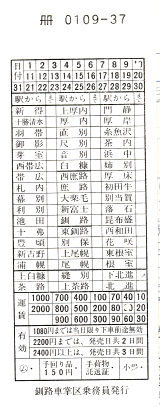 册 0109-37
日付 1 2 3 4 5 6 7 8 9 10
11 12 13 14 15 16 17 18 19 20
31 21 22 23 24 25 26 27 28 29 30
駅から まで 駅から まで 駅から まで
新得 上厚内 門静
十勝清水 厚内 厚岸
羽帯 直別 糸魚沢
御影 尺別 茶内
芽室 音別 浜中
西帯広 白糠 姉別
帯広 西庶路 厚床
札内 庶路 初田牛
幕別 大楽毛 別当賀
利別 新富士 落石
池田 釧路 昆布盛
十弗 東釧路 西和田
豊頃 別保 花咲
新吉野 上尾幌 東根室
浦幌 尾幌 根室
上白糠 縫別 下北進
茶路 上茶路 北進
運賃 1000 700 400 100 70 40 10
2000 800 500 200 80 50 20
900 600 300 90 60 30
有効 1080円までは当日限り下車前途無効
2200円までは、発売日共2日間
2400円以上は、発売日共3日間
手回り品 150円 手荷物託送証 小
釧路車掌区乗務員発行